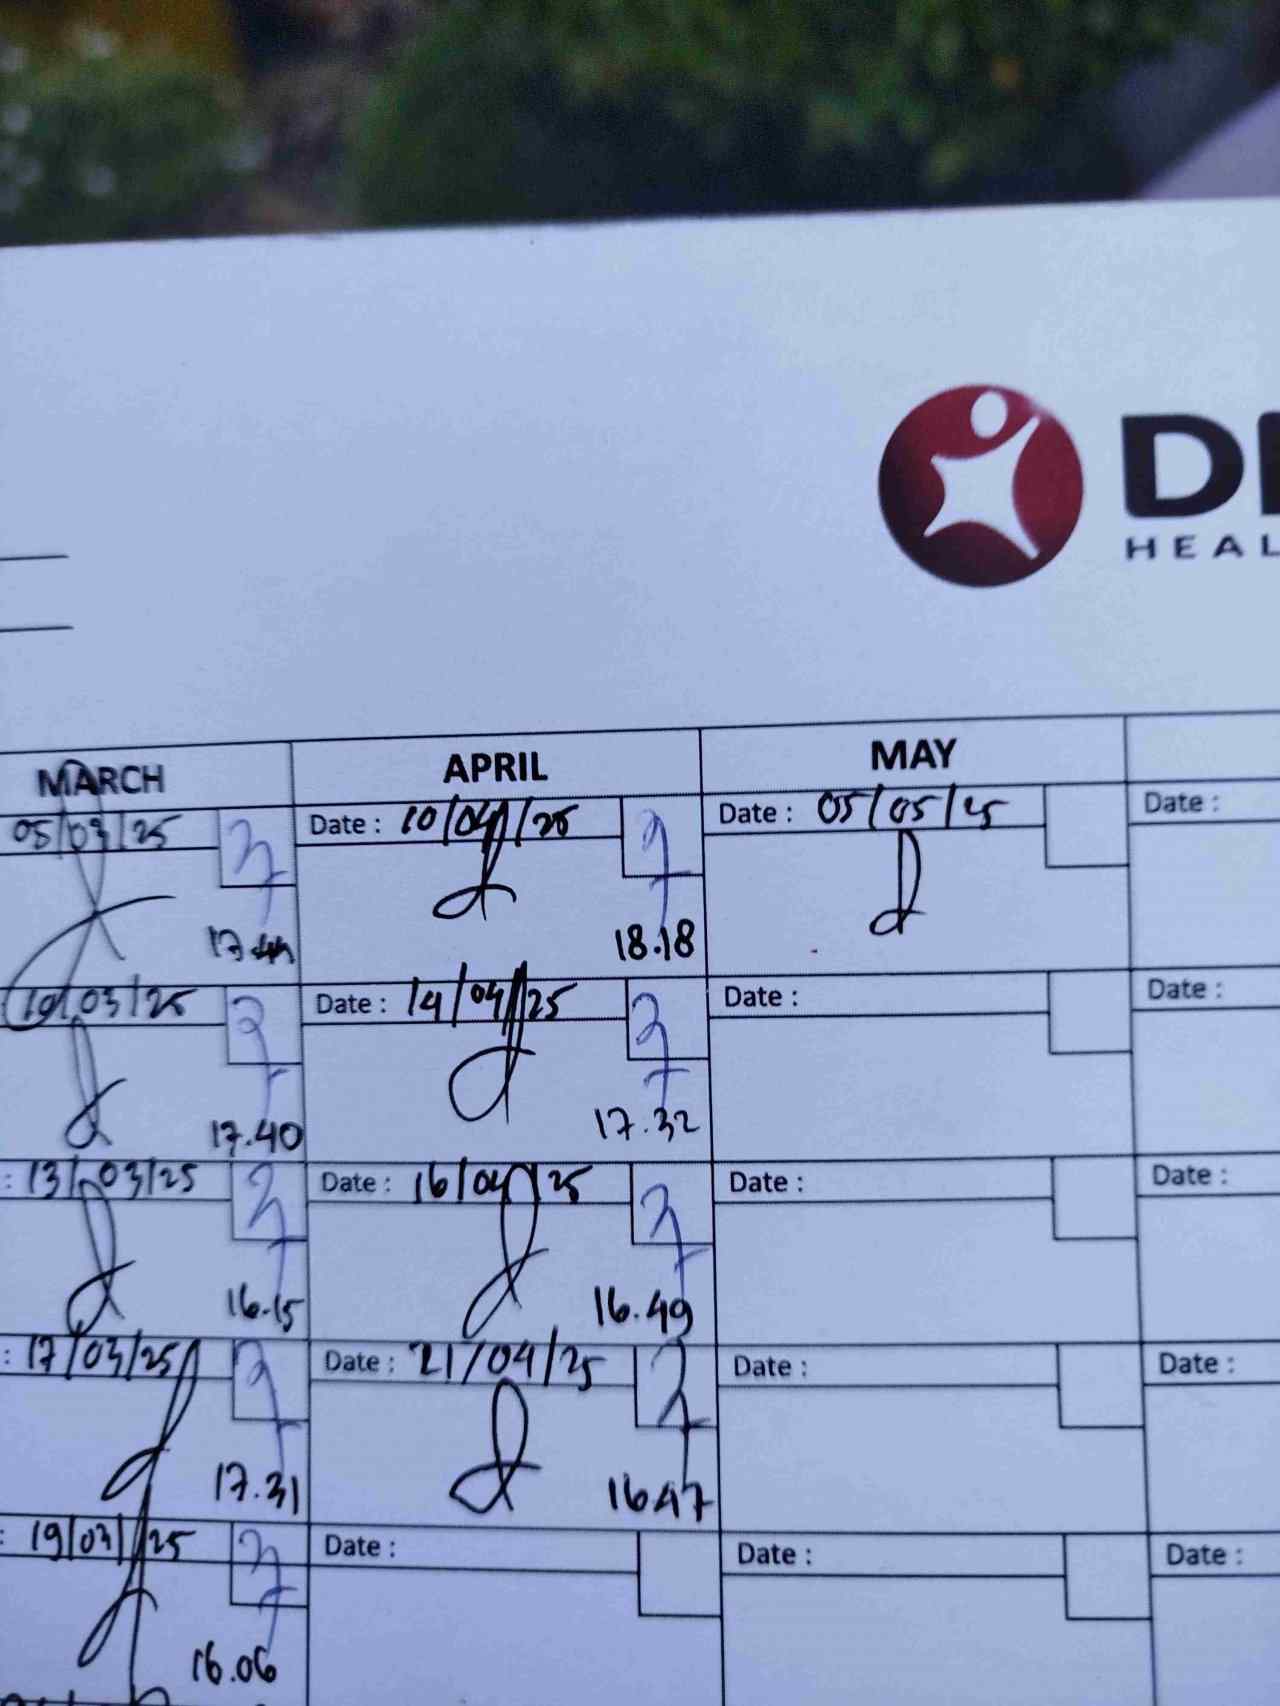 HEAL
MARCH APRIL MAY
05/03/25 Date : 10/04/25 Date : 05/05/25 Date :
18.18
10/03/25 Date : 14/04/25 Date : Date :
17.40 17.32
: 13/03/25 Date : 16/04/25 Date : Date :
16.15 16.49
: 17/03/25 Date : 21/04/25 Date : Date :
17.31 16.47
: 19/03/25 Date : Date : Date :
16.06